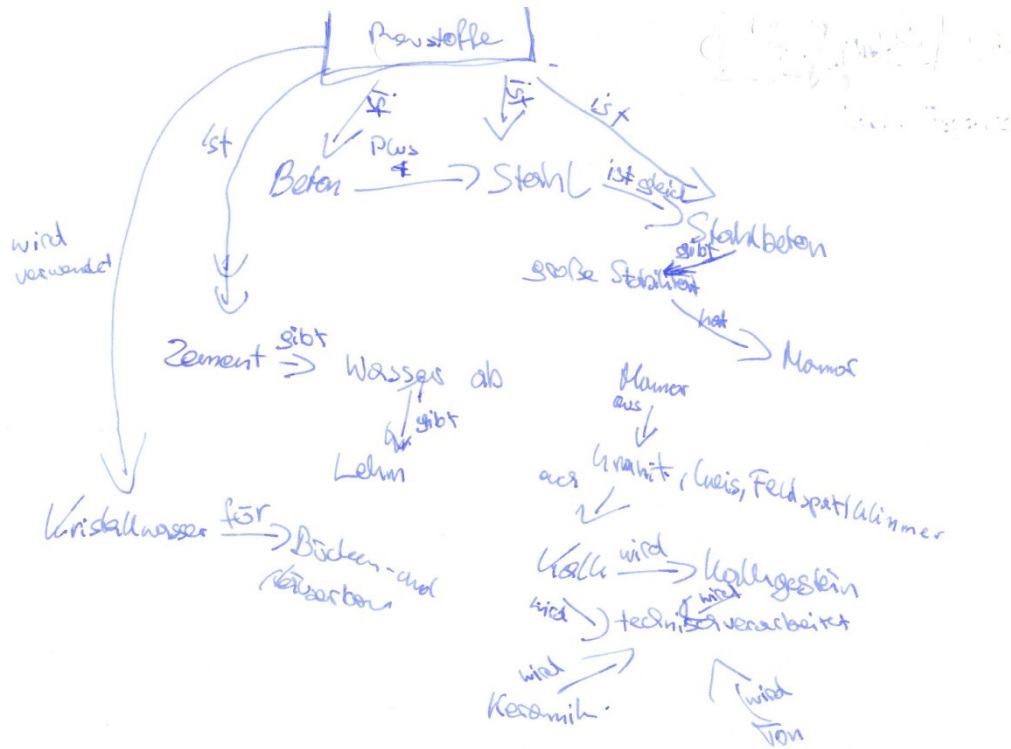 Baustoffe
ist ist ist
ist
plus
+
Beton Stahl ist gleich
Stahlbeton
wird
verwendet
gibt
große Stabilität
hat
Mamor
Zement gibt Wasser ab
gibt
Lehm
Mamor
aus
aus Granit, Gneis, Feldspat/Glimmer
Kristallwasser für Brücken- und
Häuserbau
Kalk wird Kalkgestein
wird wird
technisch verarbeitet
wird
Keramik
wird
Ton